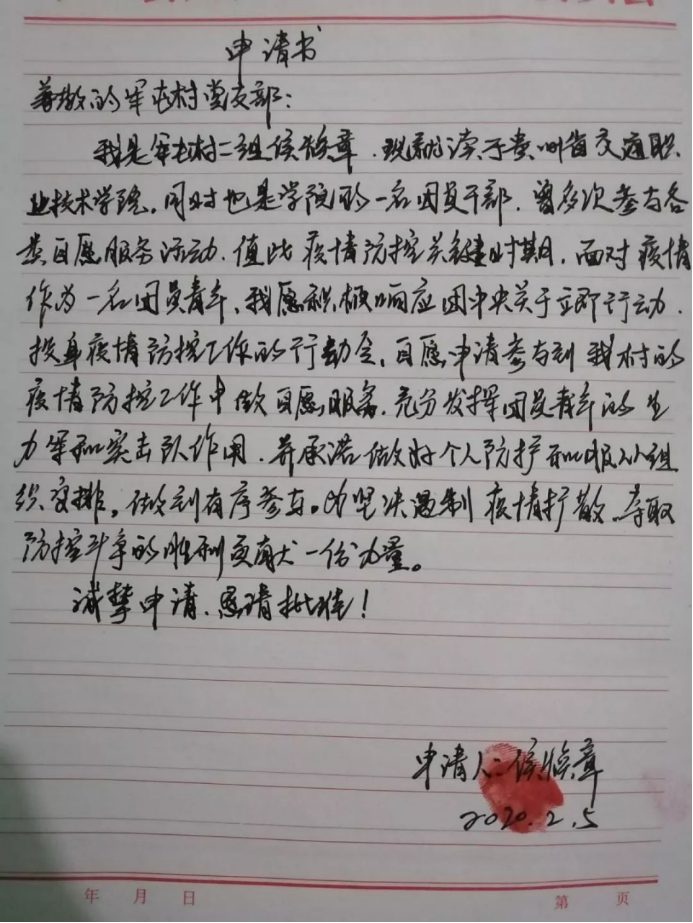 申请书
尊敬的军屯村党支部：
我是军屯村二组侯焕章，现就读于贵州省交通职
业技术学院，同时也是学院的一名团员干部，曾多次参与各
类自愿服务活动，值此疫情防控关键时期，面对疫情
作为一名团员青年，我愿积极响应团中央关于立即行动，
投身疫情防控工作的行动令，自愿申请参与到我村的
疫情防控工作中做自愿服务，充分发挥团员青年的生
力军和突击队作用，并承诺做好个人防护和服从组
织安排，做到有序参与。为坚决遏制疫情扩散、夺取
防控斗争的胜利贡献一份力量。
诚挚申请，恳请批准！
申请人：侯焕章
2020.2.5
年 月 日 第 页